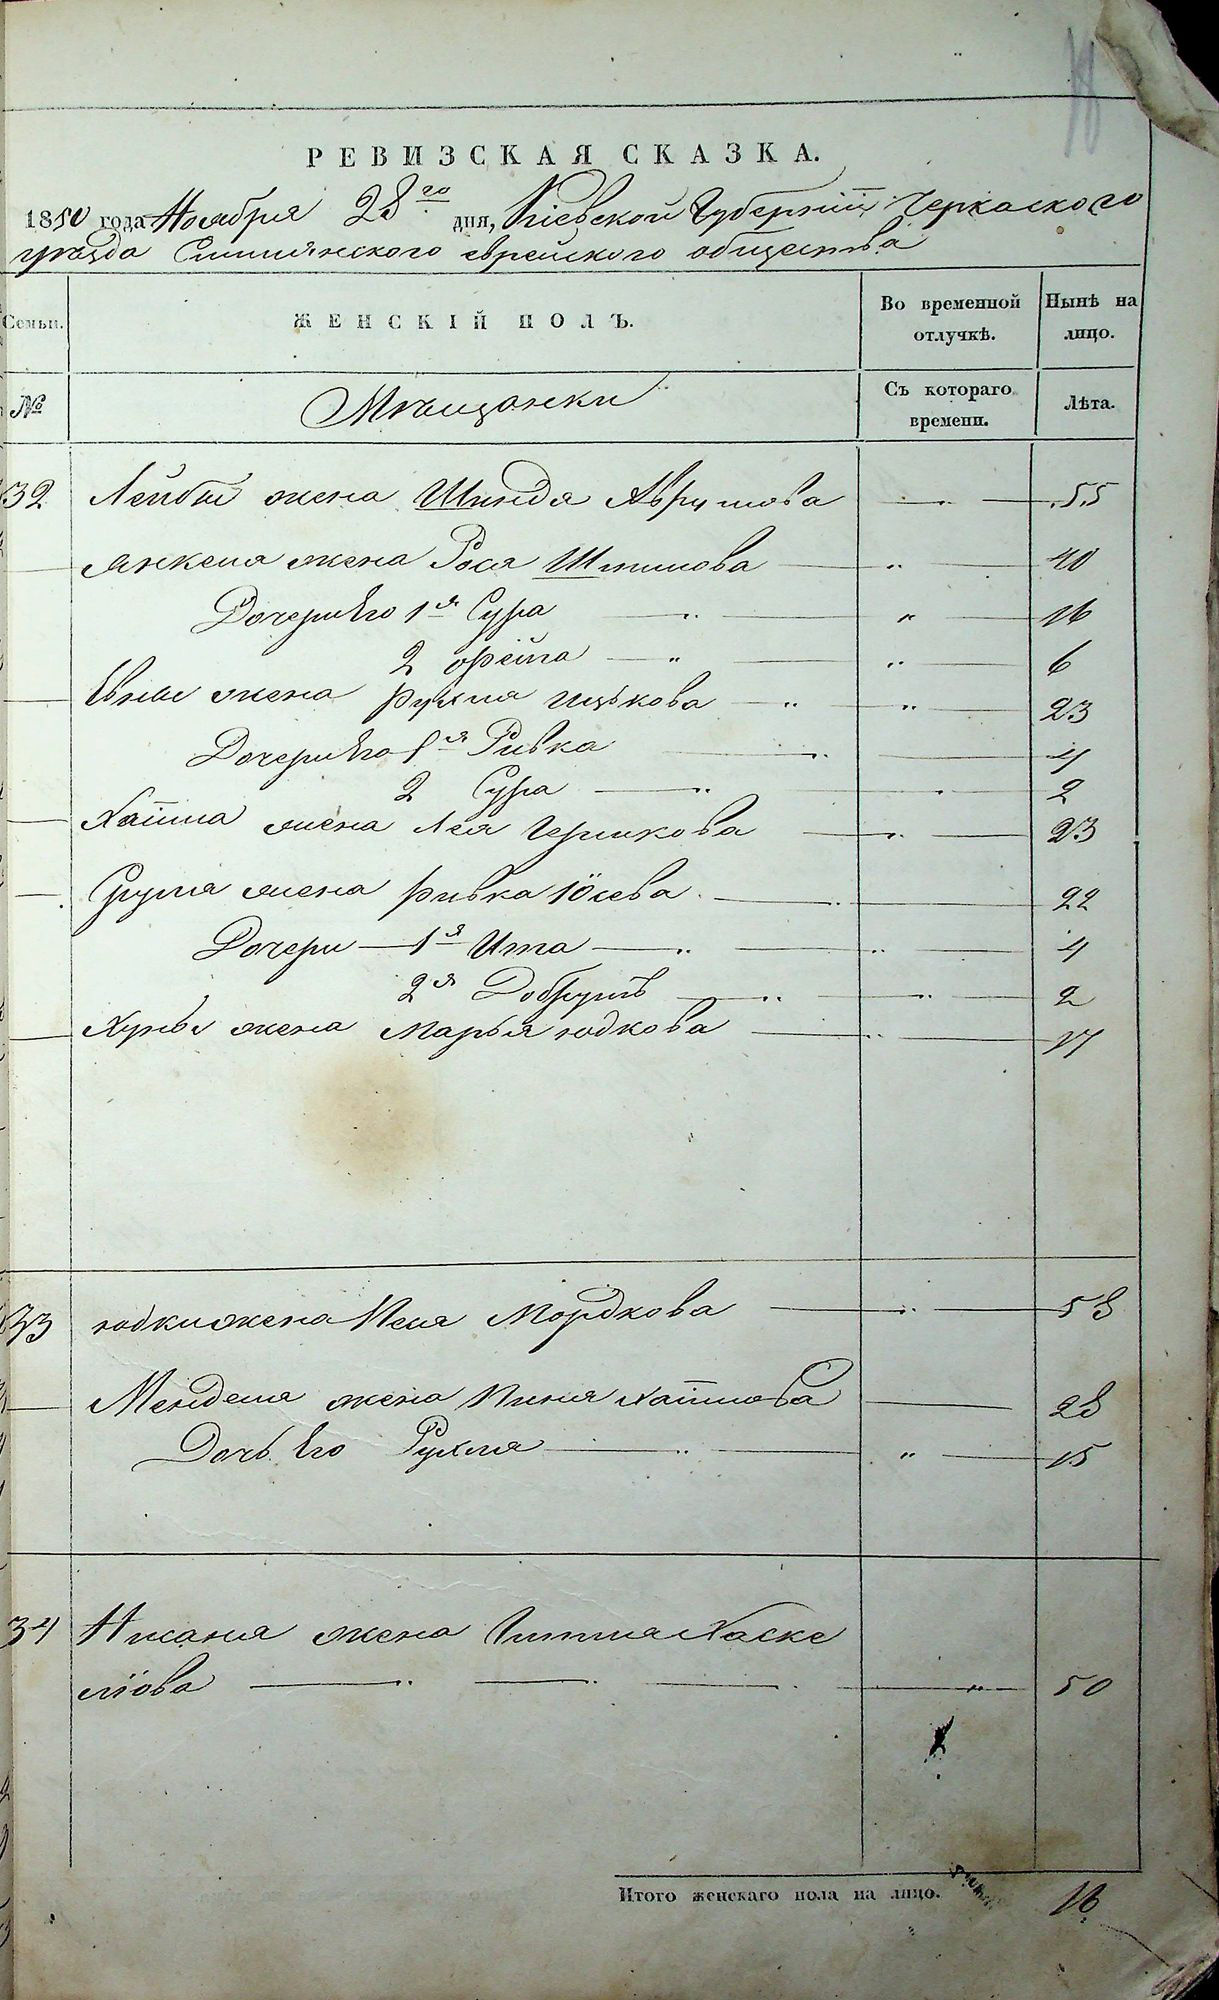 РЕВИЗСКАЯ СКАЗКА.
1850 года Ноября 28го дня, Кіевской Губерніи Черкаского
уѣзда Смилянского еврейского общества
Семьи. ЖЕНСКІЙ ПОЛЪ. Во временной отлучкѣ. Нынѣ на лицо.
№ Мѣщанки Съ котораго времени. Лѣта.
32 Лейбы жена Шиндя Аврумова 55
Янкеля жена Рося Шмилова 40
Дочери Его 1я Сура 16
2 Фейга 6
жена Рухля Ицькова 23
Дочери Его 1я Ривка 4
2 Сура 2
Хаима жена Лея Гершкова 23
Сруля жена Ривка Юсева 22
Дочери 1я Ита 4
2я 2
жена Марья Юдкова 17
33 Юдки жена Песя Мордкова 58
Менделя жена Пиня Хаимова 28
Дочь Его Рухля 15
34 Нисана жена Гитля Хаске
ліова 50
Итого женскаго пола на лицо. 16.